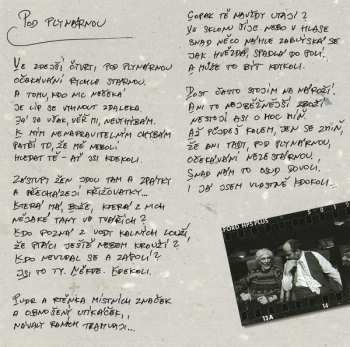 POD PLYNÁRNOU
VE ZDEJŠÍ ČTVRTI, POD PLYNÁRNOU
OČEKÁVÁNÍ RYCHLE STÁRNOU.
A TOMU, KDO MĚ NEČEKÁ
JE LÍP SE VYHNOUT ZDALEKA.
JÁ SE VŠAK, VĚŘ MI, NEVYHÝBÁM.
K MÝM NENAPRAVITELNÝM CHYBÁM
PATŘÍ TO, ŽE MĚ NEBOLÍ
HLEDAT TĚ - AŤ JSI KDEKOLI.
ZÁSTUPY ŽEN JDOU TAM A ZPÁTKY
A PŘECHÁZEJÍ KŘIŽOVATKY...
KTERÁ MÁ, BOŽE, KTERÁ Z NICH
NĚJAKÉ TAHY VE TVÁŘÍCH?
KDO POZNÁ Z VODY KALNÝCH LOUŽÍ,
ŽE PTÁCI JEŠTĚ NEBEM KROUŽÍ?
KDO NEVZDAL SE A ZAPOLÍ?
JSI TO TY. NĚKDE. KDEKOLI.
PUDR A RTĚNKA MÍSTNÍCH ZNAČEK
A OBNOŠENÝ UTÍKÁČEK,
NÁVALY RANNÍCH TRAMVAJÍ...
COPAK TĚ NAVŽDY UTAJÍ?
VE SKLONU ŠÍJE NEBO V HLASE
SNAD NĚCO NÁHLE ZABLÝSKÁ SE
JAK HVĚZDA, SPADLÁ DO POLÍ.
A MŮŽE TO BÝT KDEKOLI.
DOST ČASTO STOJÍM NA NÁROŽÍ.
ANI TO NEJBĚŽNĚJŠÍ ZBOŽÍ
NESTOJÍ ASI O MOC MÍŇ.
AŽ PŮJDEŠ KOLEM, JEN SE ZMIŇ,
ŽE ANI TADY, POD PLYNÁRNOU,
OČEKÁVÁNÍ NEZESTÁRNOU,
SNAD NÁM TO OSUD DOVOLÍ.
I JÁ JSEM VLASTNĚ KDOKOLI...
FORD HP5 PLUS
13A
14